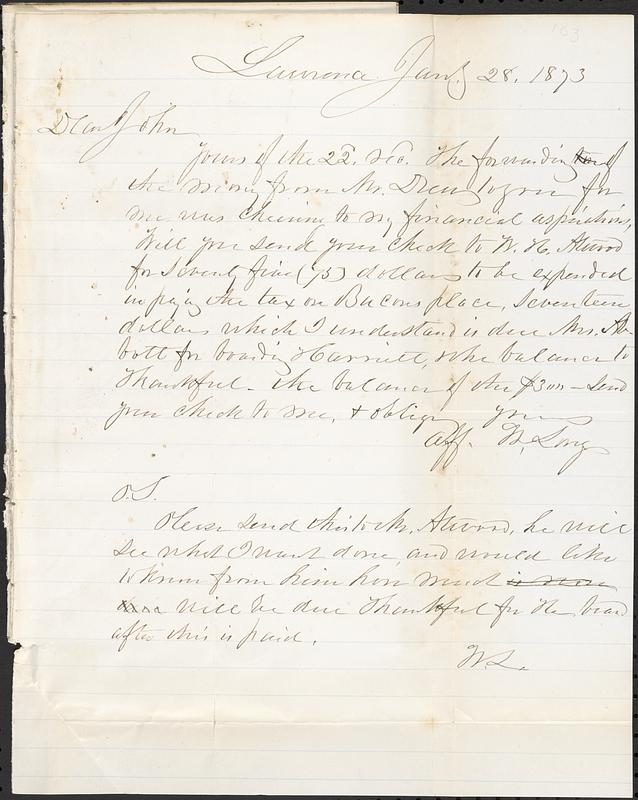 103
Lawrence Jany 28. 1873
Dear John
Yours of the 22. rec. The forwarding of
the money from Mr. Drew to you for
me was cheering to my financial aspirations,
Will you send your check to W. H. Atwood
for seventy five (75) dollars to be expended
in paying the tax on Bacons place, seventeen
dollars which I understand is due Mrs. Ab
bott for boarding Harriett, & the balance to
Thankful - the balance of the $300 - send
your check to me, & oblige yours
Aff. W. Long
P.S.
Please send this to Mr. Atwood, he will
see what I want done, and would like
to know from him how much is now
will be due Thankful for the board
after this is paid.
W. L.